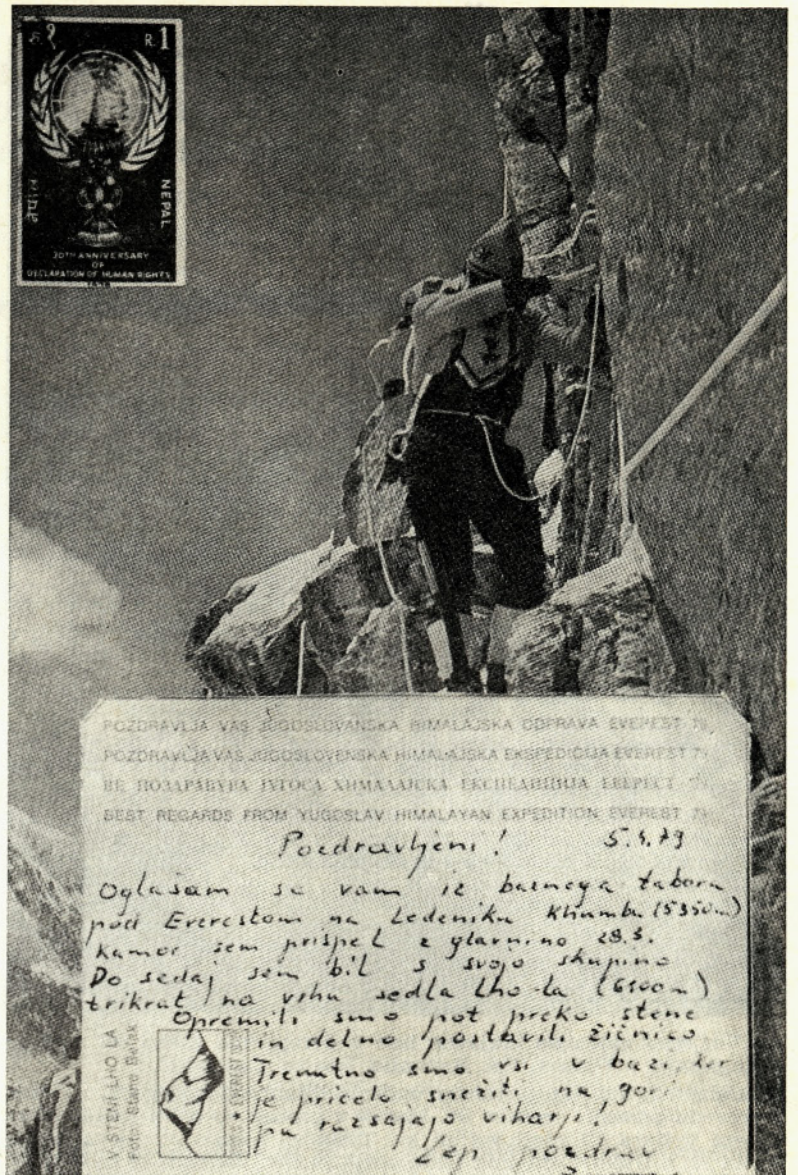 R.1
नेपाल
NEPAL
20TH ANNIVERSARY
OF
DECLARATION OF HUMAN RIGHTS
POZDRAVLJA VAS JUGOSLOVANSKA HIMALAJSKA ODPRAVA EVEREST 79
POZDRAVLJA VAS JUGOSLOVENSKA HIMALAJSKA EKSPEDICIJA EVEREST 79
ВЕ ХИМАЛАЈСКА ЕКСПЕДИЦИЈА ЕВЕРЕСТ 79
BEST REGARDS FROM YUGOSLAV HIMALAYAN EXPEDITION EVEREST 79
Pozdravljeni! 5.4.79
Oglašam se vam iz baznega tabora
pod Everestom na ledeniku Khumbu (5350m)
kamor sem prispel z glavnino 28.3.
Do sedaj sem bil s svojo skupino
trikrat na vrhu sedla Lho-la (6100m)
Opremili smo pot preko stene
in delno postavili žičnico.
Trenutno smo vsi v bazi, ker
je pričelo snežiti na gori
pa razsajajo viharji!
Lep pozdrav
V STENI LHO LA
Foto: Stane Belak
EVEREST